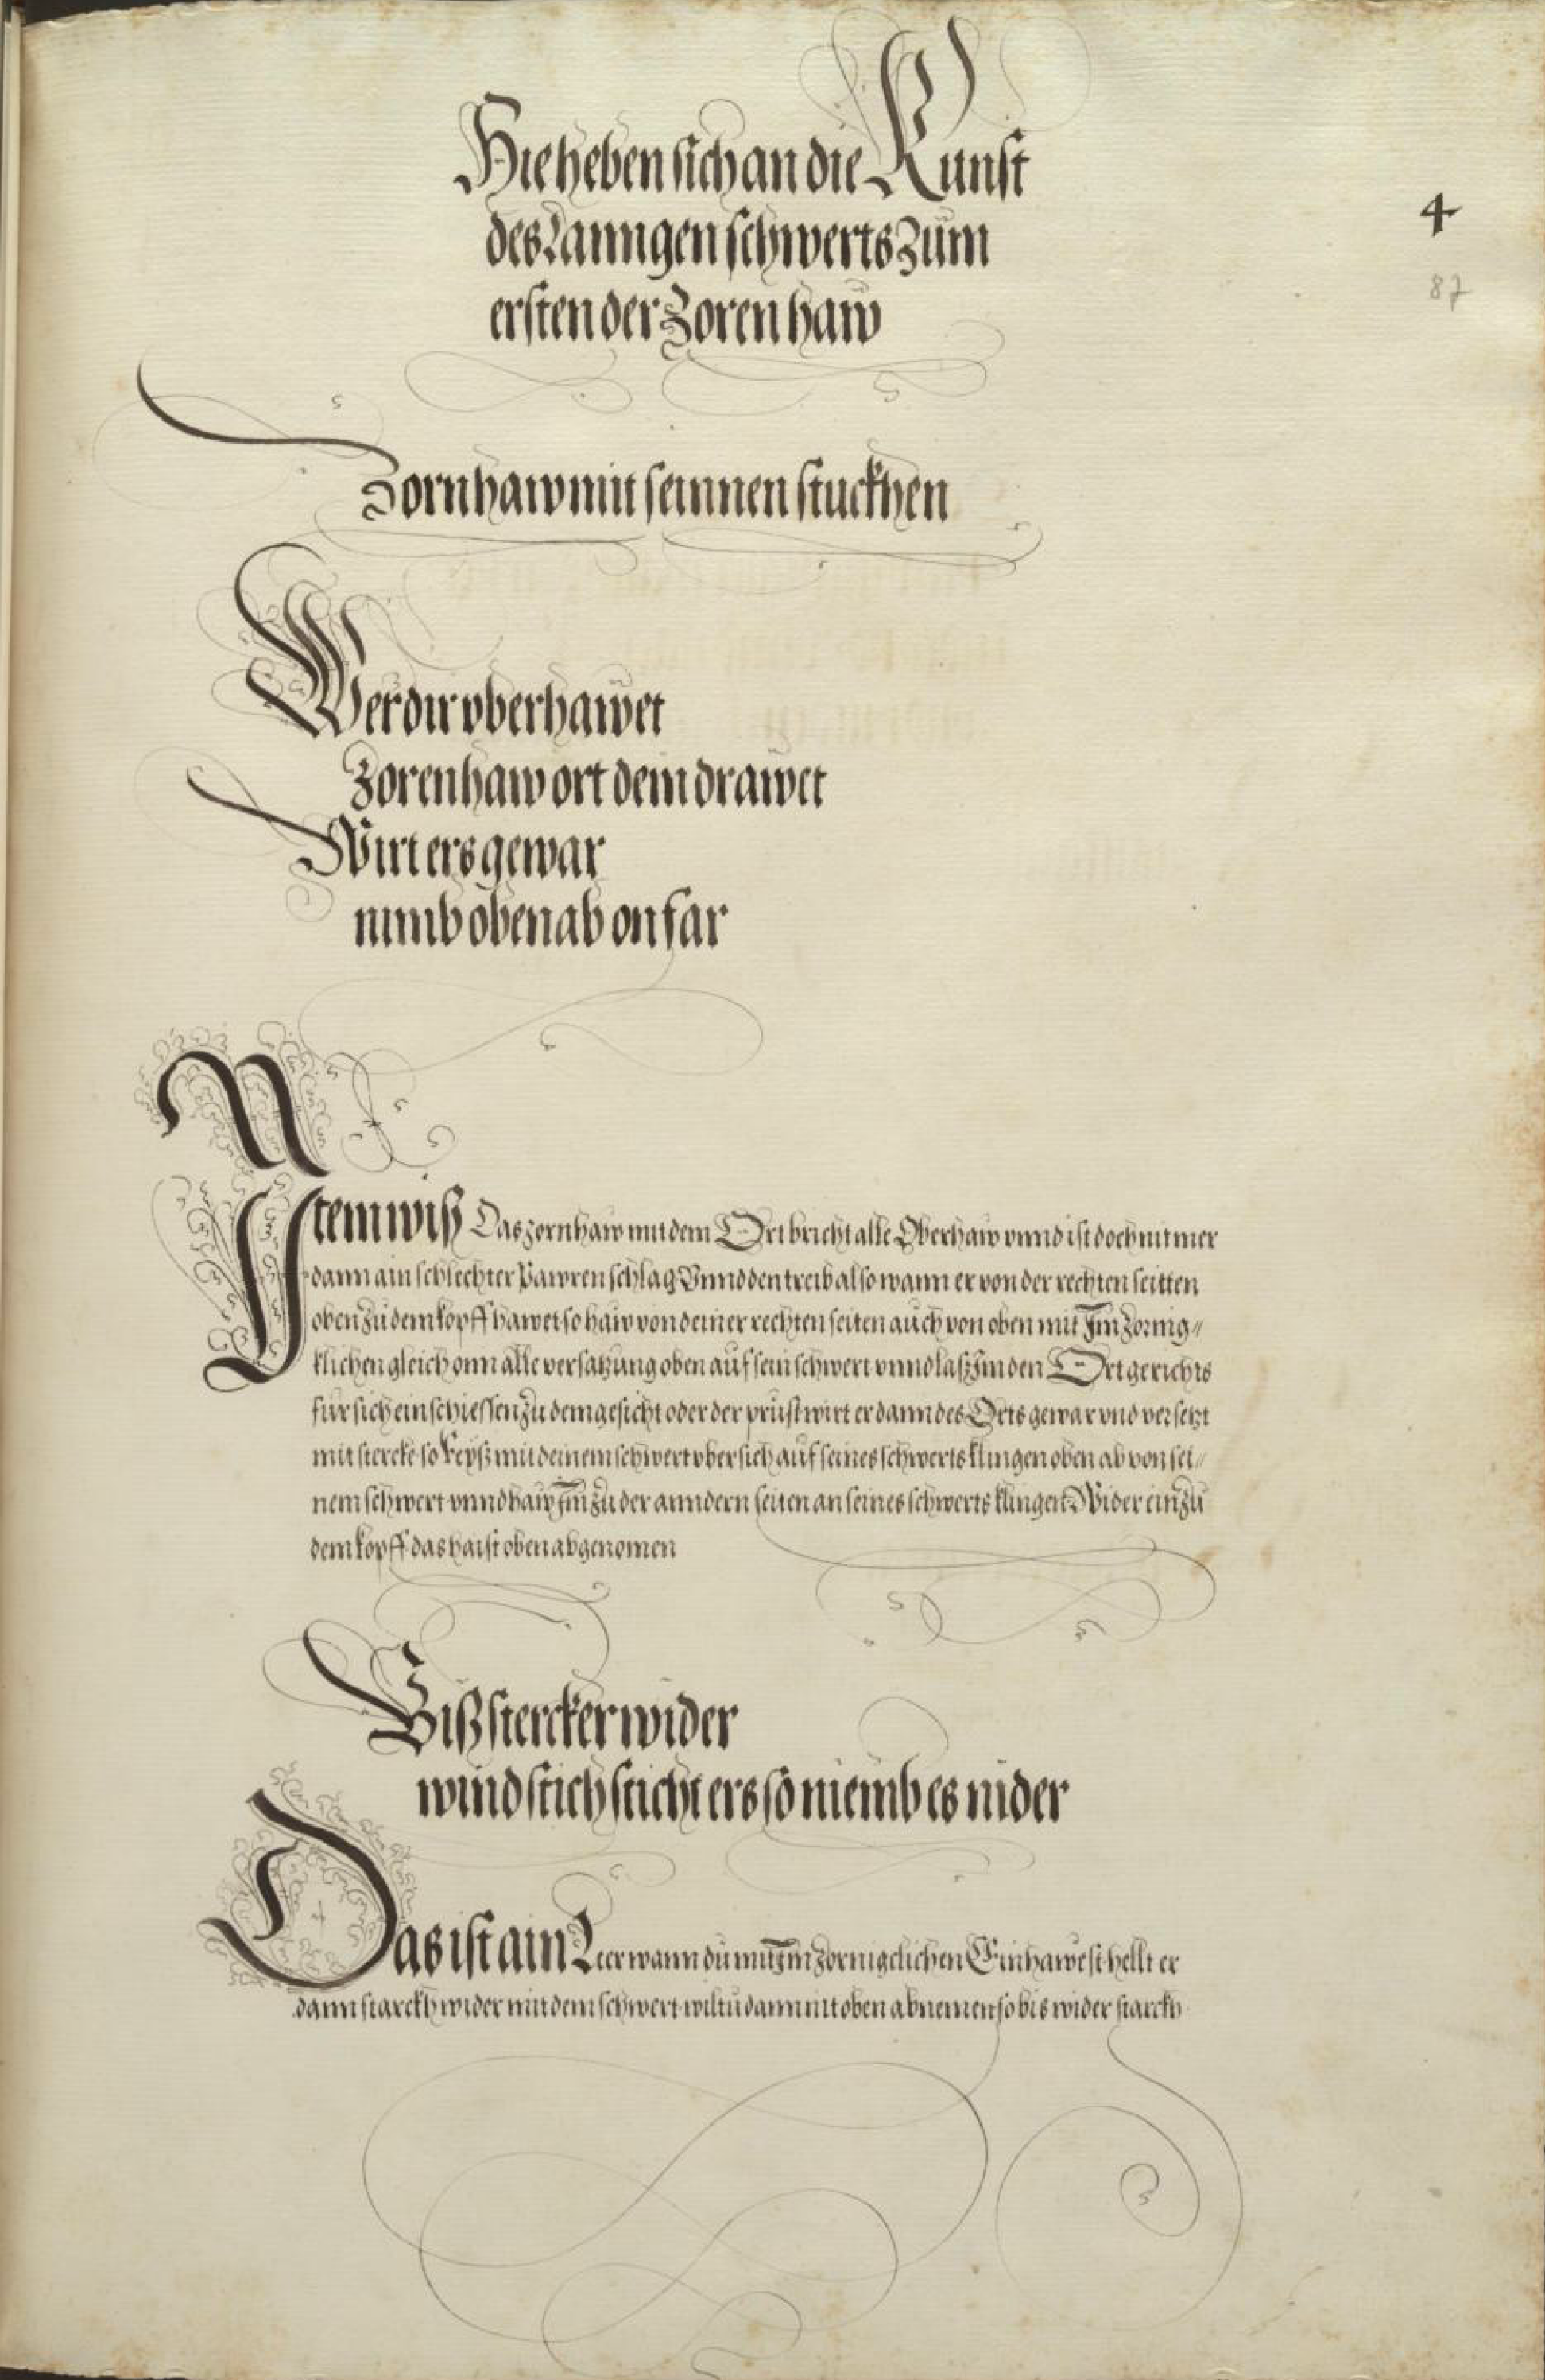 Hie heben sich an die Kunst
des Lanngen schwerts Zum
ersten der Zoren haw
4
87
Zorn haw mit seinnen stuckhen
Wer dir vberhawet
Zorenhaw ort dem drawet
Wirt ers gewar
nimb oben ab on far
Item wiß Das zornhaw mit dem Ort bricht alle Oberhaw vnnd ist doch nit mer
dann ain schlechter Pawren schlag Vnnd den treib also wann er von der rechten seitten
oben zu dem kopff hawet so haw von deiner rechten seiten auch von oben mit Im Zornig„
klichen gleich onn alle versatzung oben auf sein schwert vnnd laß Im den Ort gerichts
fur sich ein schiessen zu dem gesicht oder der prust wirt er dann des Orts gewar vnd versetzt
mit stercke so Reyß mit deinem schwert vber sich auf seines schwerts klingen oben ab von sei„
nem schwert vnnd haw Im zu der anndern seiten an seines schwerts klingen Wider ein zu
dem kopff das haist oben abgenomen
Biß stercker wider
wind stich sticht ers so niemb es nider
Das ist ain Leer wann du mit Im zornigclichen Einhawest hellt er
dann starckh wider mit dem schwert wiltu dann nit oben abnemen so bis wider starckh